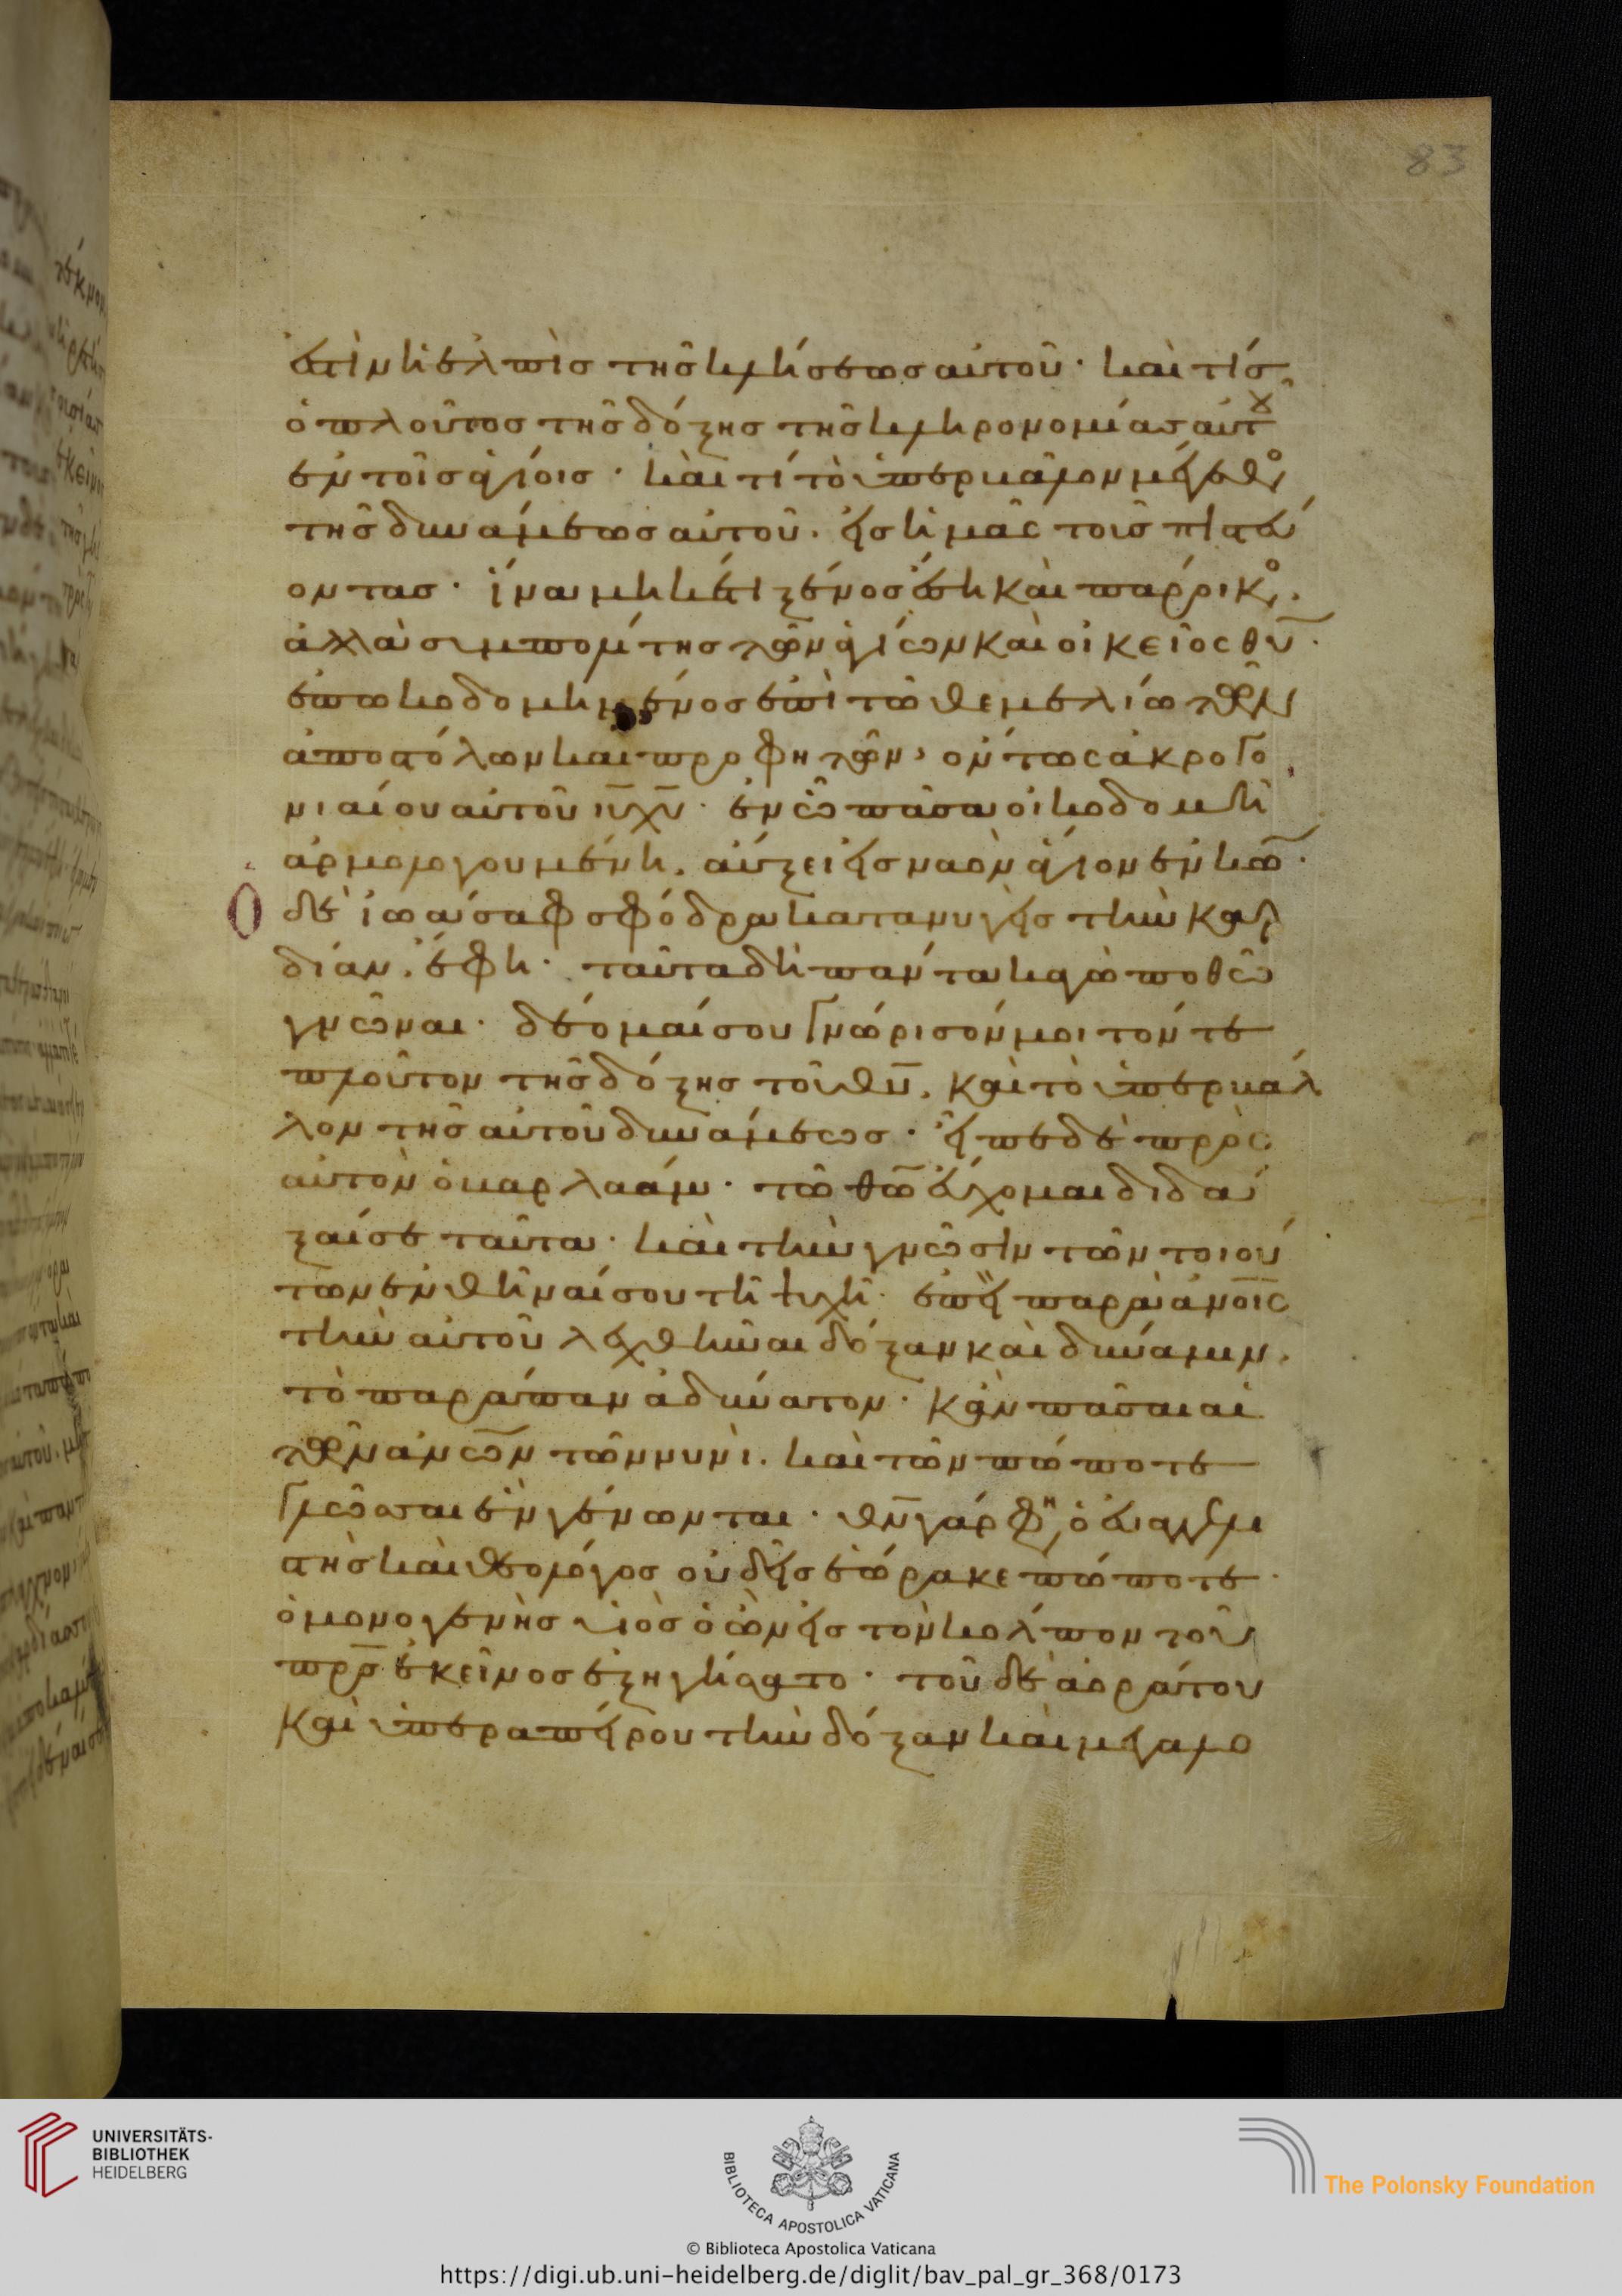 83
ἐστὶν ἡ ἐλπὶσ τῆσ κλήσεωσ αὐτοῦ· καὶ τίσ
ὁ πλοῦτοσ τῆσ δόξησ τῆσ κληρονομίασ αὐτοῦ
ἐν τοῖσ ἁγίοισ· καὶ τί τὸ ὑπερβάλλον μέγεθος
τῆσ δυνάμεωσ αὐτοῦ. εἰσ ἡμᾶς τοὺσ πιστεύ
οντασ· ἵνα μηκέτι ξένοσ ἔση καὶ πάροικος.
ἀλλὰ συμπολίτησ τῶν ἁγίων καὶ οἰκεῖος θυ·
ἐπωκοδομημένοσ ἐπὶ τῶ θεμελίω τῶν
ἀποστόλων καὶ προφητῶν, ὄντως ἀκρογω
νιαίου αὐτοῦ ιυ χυ· ἐν ὧ πᾶσα οἰκοδομὴ
ἁρμολογουμένη. αὔξει εἰσ ναὸν ἅγιον ἐν κω·
Ο δὲ ἰωάσαφ σφόδρα κατανυγεὶσ τὴν καρ
δίαν. ἔφη· ταῦτα δὴ πάντα κἀγὼ ποθῶ
γνῶναι· δέομαί σου γνώρισόν μοι τόν τε
πλοῦτον τῆσ δόξησ τοῦ θυ. καὶ τὸ ὑπερβάλ
λον τῆσ αὐτοῦ δυνάμεωσ· εἶπε δὲ πρὸς
αὐτὸν ὁ βαρλαάμ· τῶ θω εὔχομαι διδά
ξαί σε ταῦτα· καὶ τὴν γνῶσιν τῶν τοιού
των ἐνθεῖναί σου τῆ ψυχῆ· ἐπεὶ παρὰ ανοις
τὴν αὐτοῦ λεχθῆναι δόξαν καὶ δύναμιν.
τὸ παράπαν ἀδύνατον· κἂν πᾶσαι αἱ
τῶν ανων τῶν νυνὶ. καὶ τῶν πώποτε
γλῶσσαι ἓν γένωνται· θν γάρ φη, ὁ εὐαγγελι
στὴσ καὶ θεολόγοσ οὐδεὶσ ἑώρακε πώποτε·
ὁ μονογενὴσ υἱὸσ ὁ ὢν εἰσ τὸν κόλπον τοῦ
πρσ ἐκεῖνοσ ἐξηγήσατο· τοῦ δὲ ἀοράτου
καὶ ὑπεραπείρου τὴν δόξαν καὶ μεγαλο
UNIVERSITÄTS-
BIBLIOTHEK
HEIDELBERG
BIBLIOTECA APOSTOLICA VATICANA
© Biblioteca Apostolica Vaticana
The Polonsky Foundation
https://digi.ub.uni-heidelberg.de/diglit/bav_pal_gr_368/0173